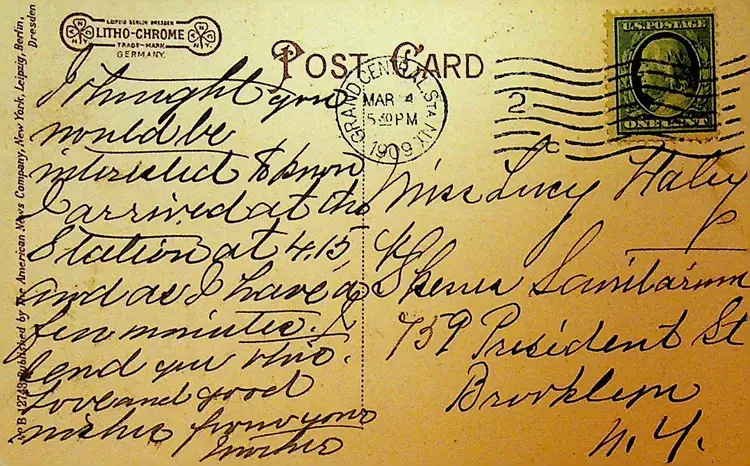 LEIPZIG BERLIN DRESDEN
LITHO-CHROME
TRADE-MARK
GERMANY.
POST CARD
GRAND CENTRAL STA. N.Y.
MAR 4
5 30 PM
1909
2
C
U.S. POSTAGE
ONE CENT
No B 12743 Published by The American News Company, New York, Leipzig, Berlin,
Dresden
I thought you
would be
interested to know
I arrived at the
Station at 4.15
and as I have a
few minutes. I
send you this.
Love and good
wishes from your
mother
Miss Lucy Haley
℅ Skenes Sanitarium
759 President St
Brooklyn
N.Y.